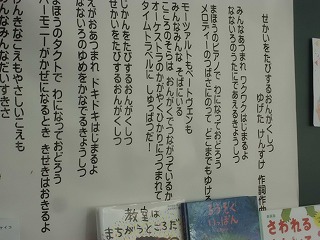 せかいをたびするおんがくしつ
ゆげた けんすけ 作詞作曲
みんなあつまれ ワクワクはじまるよ
なないろのうたにてあえるきょうしつ
まほうのピアノで わになっておどろう
メロディーのつばさにのって どこまでもゆける
モーツァルトもベートヴェンも
みんなみんな そばにいる
こころのそらは おんがくでつながっているか
オーケストラのかがやくひかりにつつまれて
タイムトラベルに しゅっぱつだ！
じかんをたびするおんがくしつ
せかいをたびするおんがくしつ
えがおあつまれ ドキドキはじまるよ
なないろのゆめをかなでるきょうしつ
まほうのタクトで わになっておどろう
ハーモニーがかぜになるとき きせきはおきるよ
げんきなこえもやさしいこえも
みんなみんなだいすきさ
教室は
まちがうところだ
いっぽん
さわれる